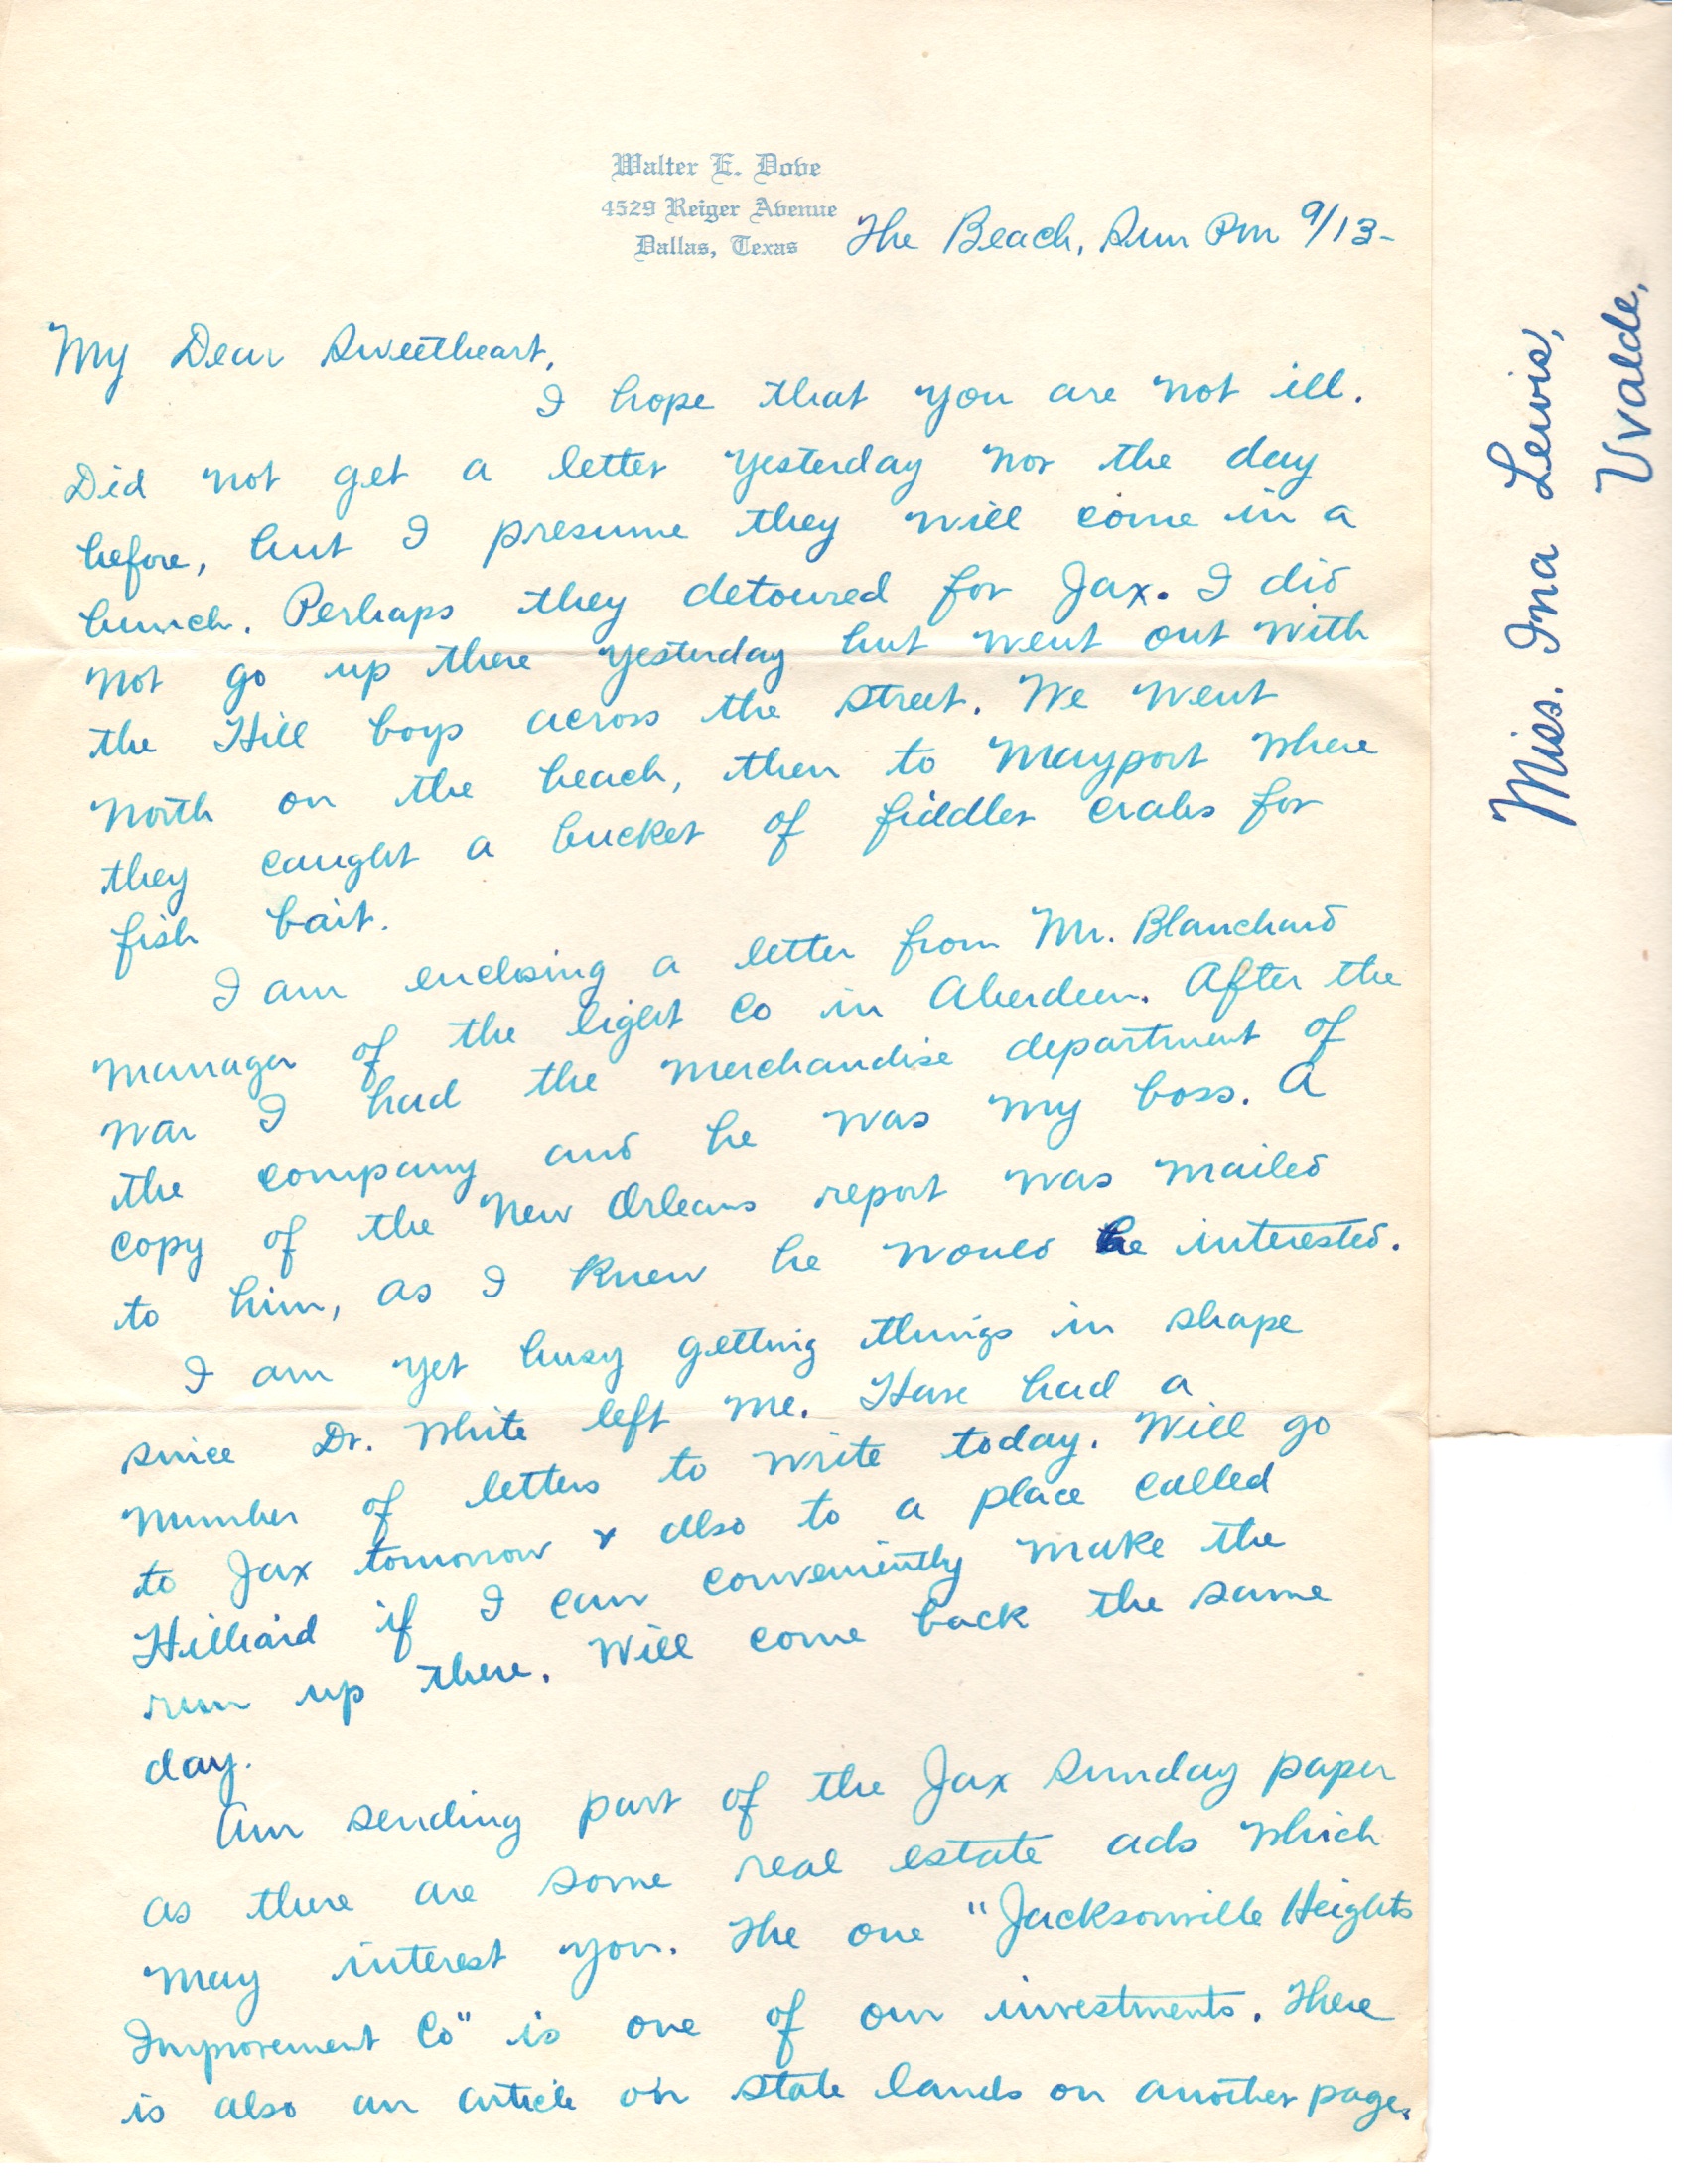 Walter E. Dove
4529 Reiger Avenue
Dallas, Texas
The Beach, Sun Pm 9/13-
My Dear Sweetheart,
I hope that you are not ill.
Did not get a letter yesterday nor the day
before, but I presume they will come in a
bunch. Perhaps they detoured for Jax. I did
not go up there yesterday but went out with
the Hill boys across the street. We went
north on the beach, then to Mayport where
they caught a bucket of fiddler crabs for
fish bait.
I am enclosing a letter from Mr. Blanchard
manager of the light Co in Aberdeen. After the
war I had the merchandise department of
the company and he was my boss. A
copy of the New Orleans report was mailed
to him, as I knew he would be interested.
I am yet busy getting things in shape
since Dr. White left me. Have had a
number of letters to write today. Will go
to Jax tomorrow & also to a place called
Hilliard if I can conveniently make the
run up there. Will come back the same
day.
Am sending part of the Jax Sunday paper
as there are some real estate ads which
may interest you. The one "Jacksonville Heights
Improvement Co" is one of our investments. There
is also an article on state lands on another page.
Miss. Ina Lewis,
Uvalde,